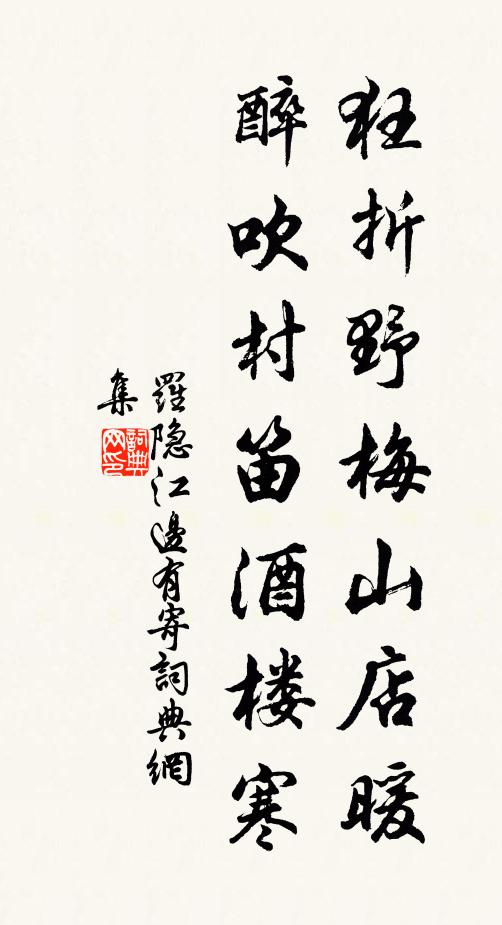 狂折野梅山店暖
醉吹村笛酒楼寒
羅隐江邊有寄詞典網
集
詞典网印